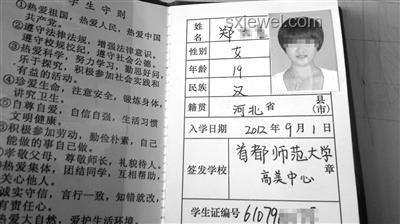 学生守则
①热爱祖国，热爱人民，热爱中国共产党。
②遵守法律法规，增强法律意识。遵守校规校纪，遵守社会公德。
③热爱科学，努力学习，勤思好问，乐于探究，积极参加社会实践和有益的活动。
④珍爱生命，注意安全，锻炼身体，讲究卫生。
⑤自尊自爱，自信自强，生活习惯文明健康。
⑥积极参加劳动，勤俭朴素，自己能做的事自己做。
⑦孝敬父母，尊敬师长，礼貌待人。
⑧热爱集体，团结同学，互相帮助，关心他人。
诚实守信，言行一致，知错就改，有责任心。
热爱大自然，爱护生活环境。
sxjewel.com
姓名 郑
性别 女
年龄 19
民族 汉
籍贯 河北 省 县（市）
入学日期 2012 年 9 月 1 日
签发学校 首都师范大学 高美中心 章
学生证编号 61079